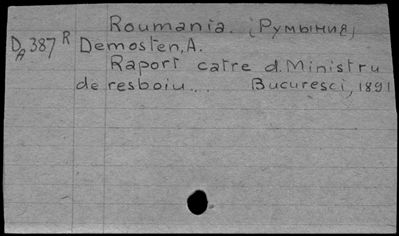 Roumania. (Румыния)
DA387R Demosten, A.
Raport catre d. Ministru
de resboiu... Bucuresci, 1891